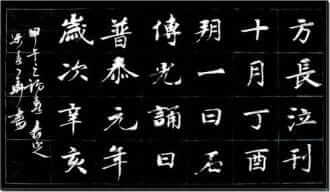 方長泣刊
十月丁酉
朔一日石
傳光誦曰
普泰元年
歲次辛亥
甲午之